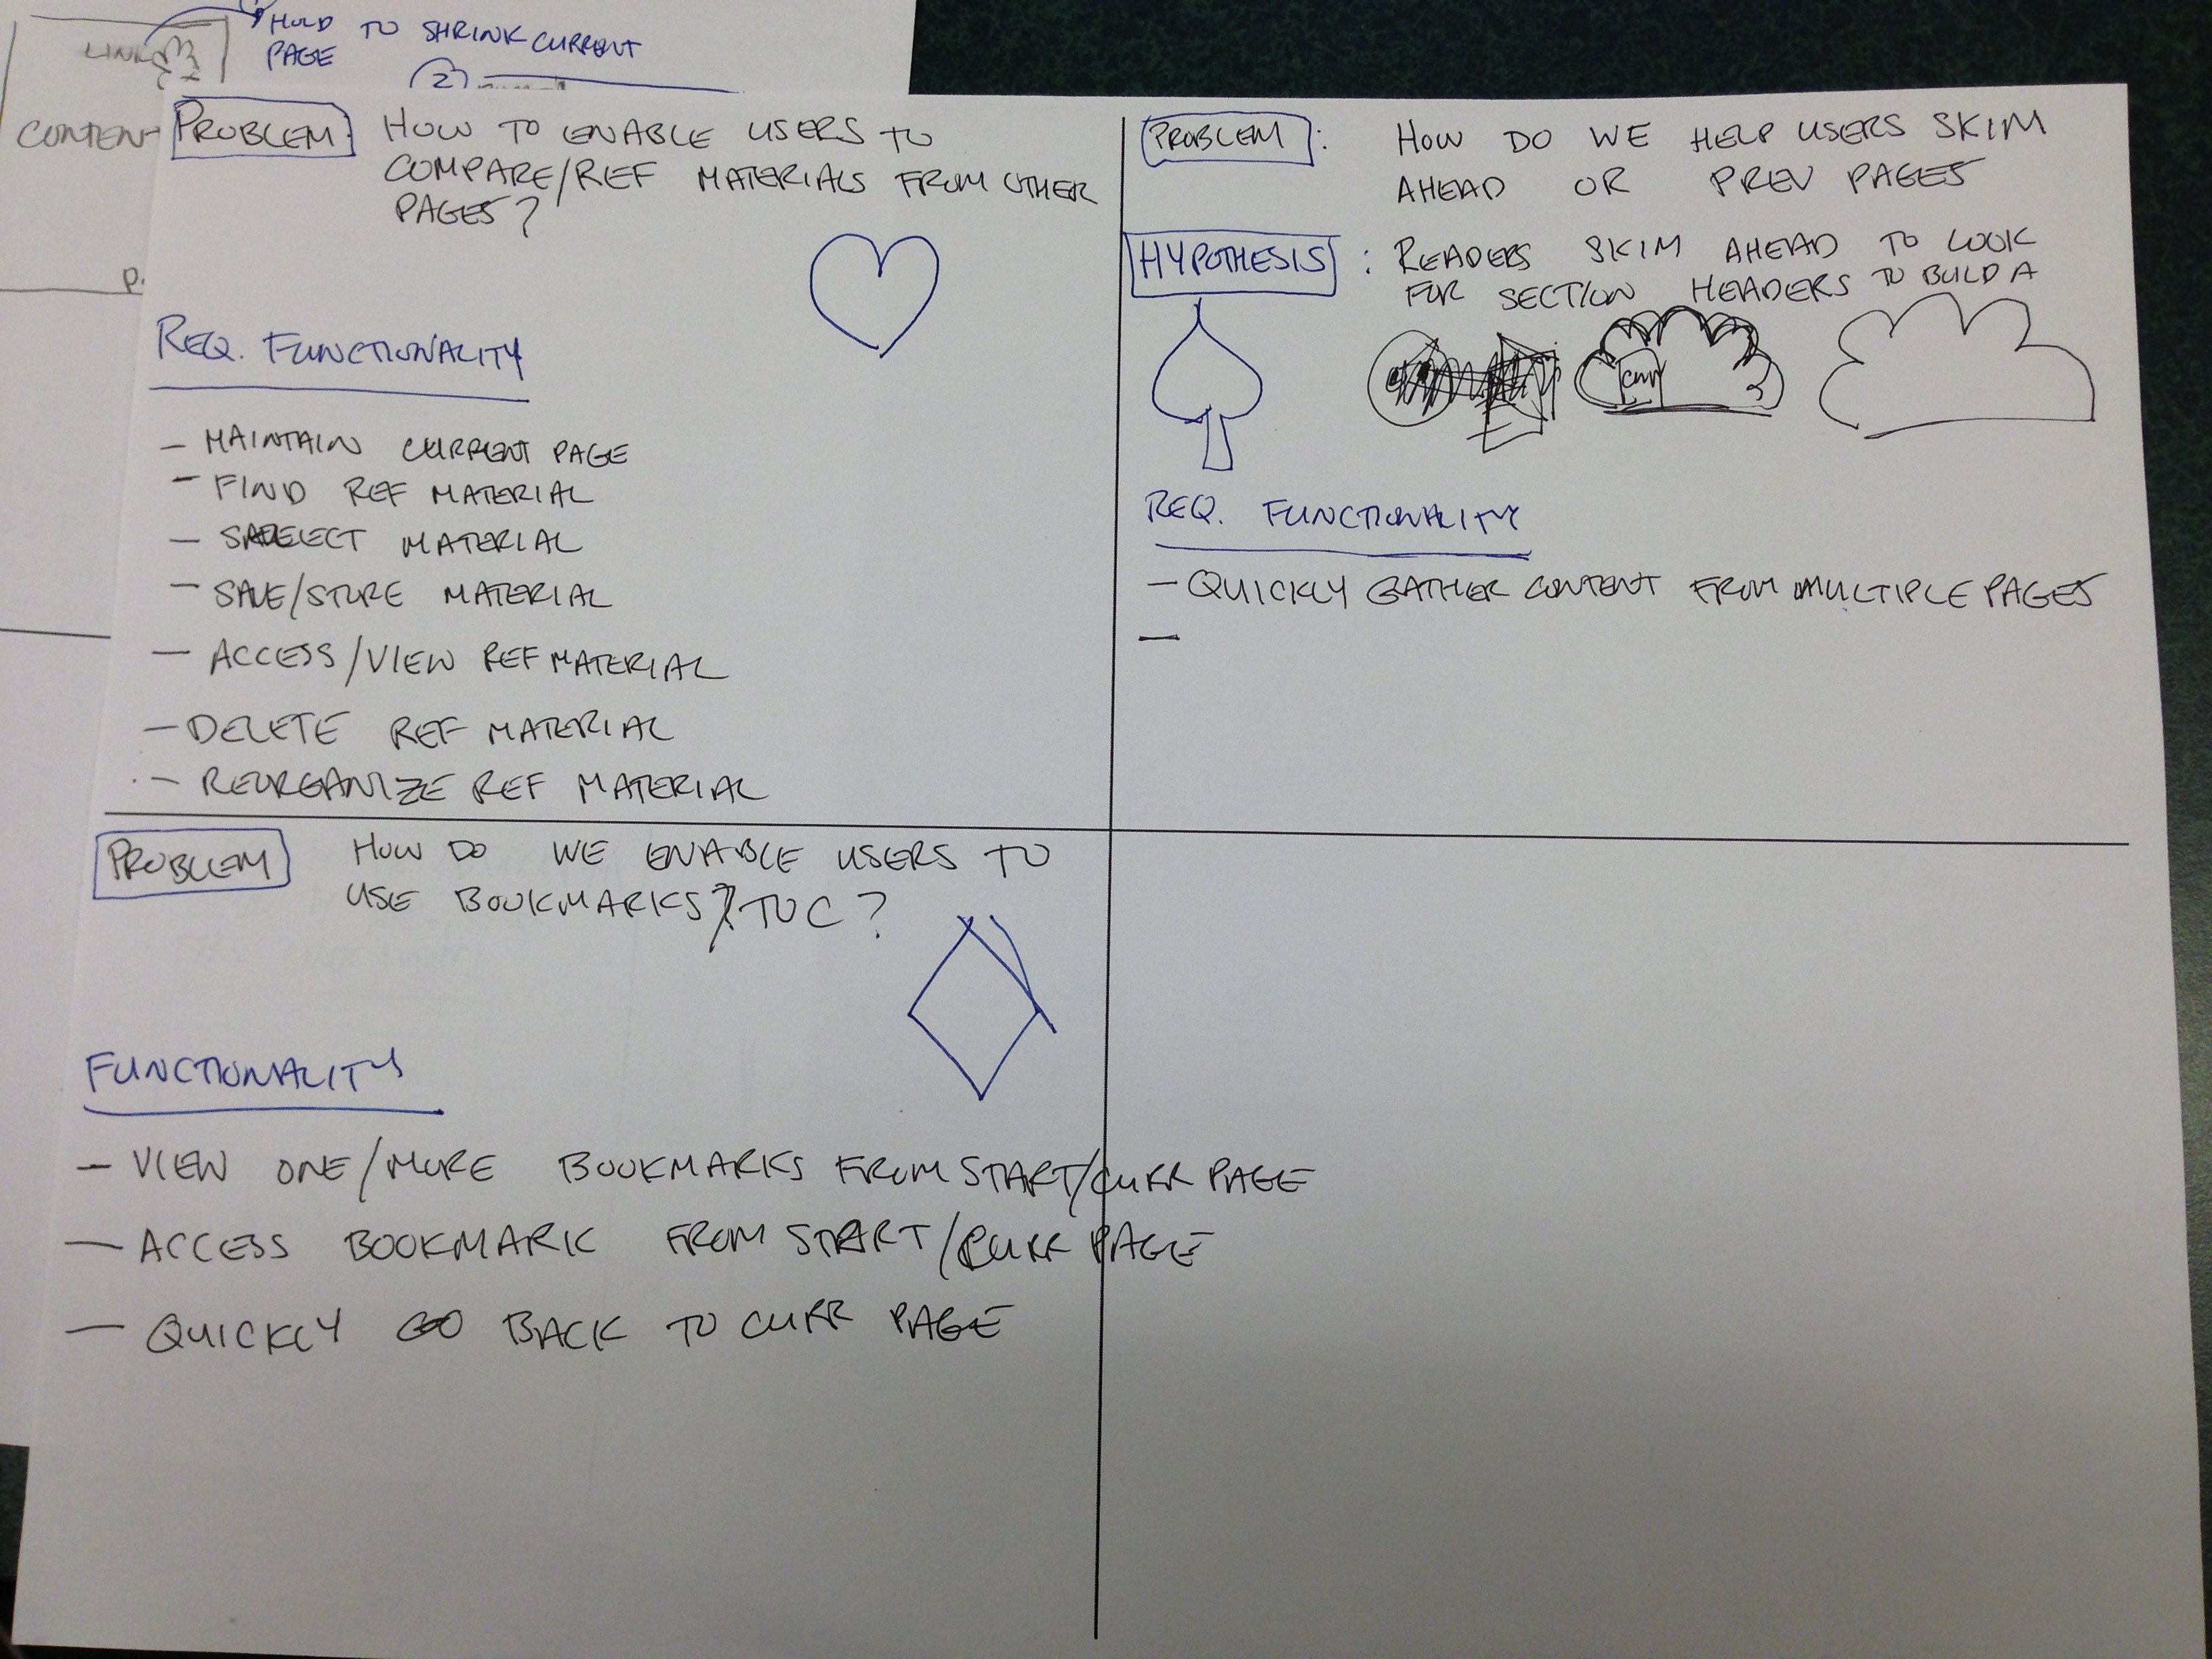 CONTENT
HOLD TO SHRINK CURRENT
PAGE
2)
P.
PROBLEM HOW TO ENABLE USERS TO
COMPARE/REF MATERIALS FROM OTHER
PAGES?
REQ. FUNCTIONALITY
- MAINTAIN CURRENT PAGE
- FIND REF MATERIAL
- SELECT MATERIAL
- SAVE/STORE MATERIAL
- ACCESS/VIEW REF MATERIAL
- DELETE REF MATERIAL
- REORGANIZE REF MATERIAL
PROBLEM HOW DO WE ENABLE USERS TO
USE BOOKMARKS?/TOC?
FUNCTIONALITY
- VIEW ONE/MORE BOOKMARKS FROM START/CURR PAGE
- ACCESS BOOKMARK FROM START/CURR PAGE
- QUICKLY GO BACK TO CURR PAGE
PROBLEM: HOW DO WE HELP USERS SKIM
AHEAD OR PREV PAGES
HYPOTHESIS: READERS SKIM AHEAD TO LOOK
FOR SECTION HEADERS TO BUILD A
REQ. FUNCTIONALITY
- QUICKLY GATHER CONTENT FROM MULTIPLE PAGES
-